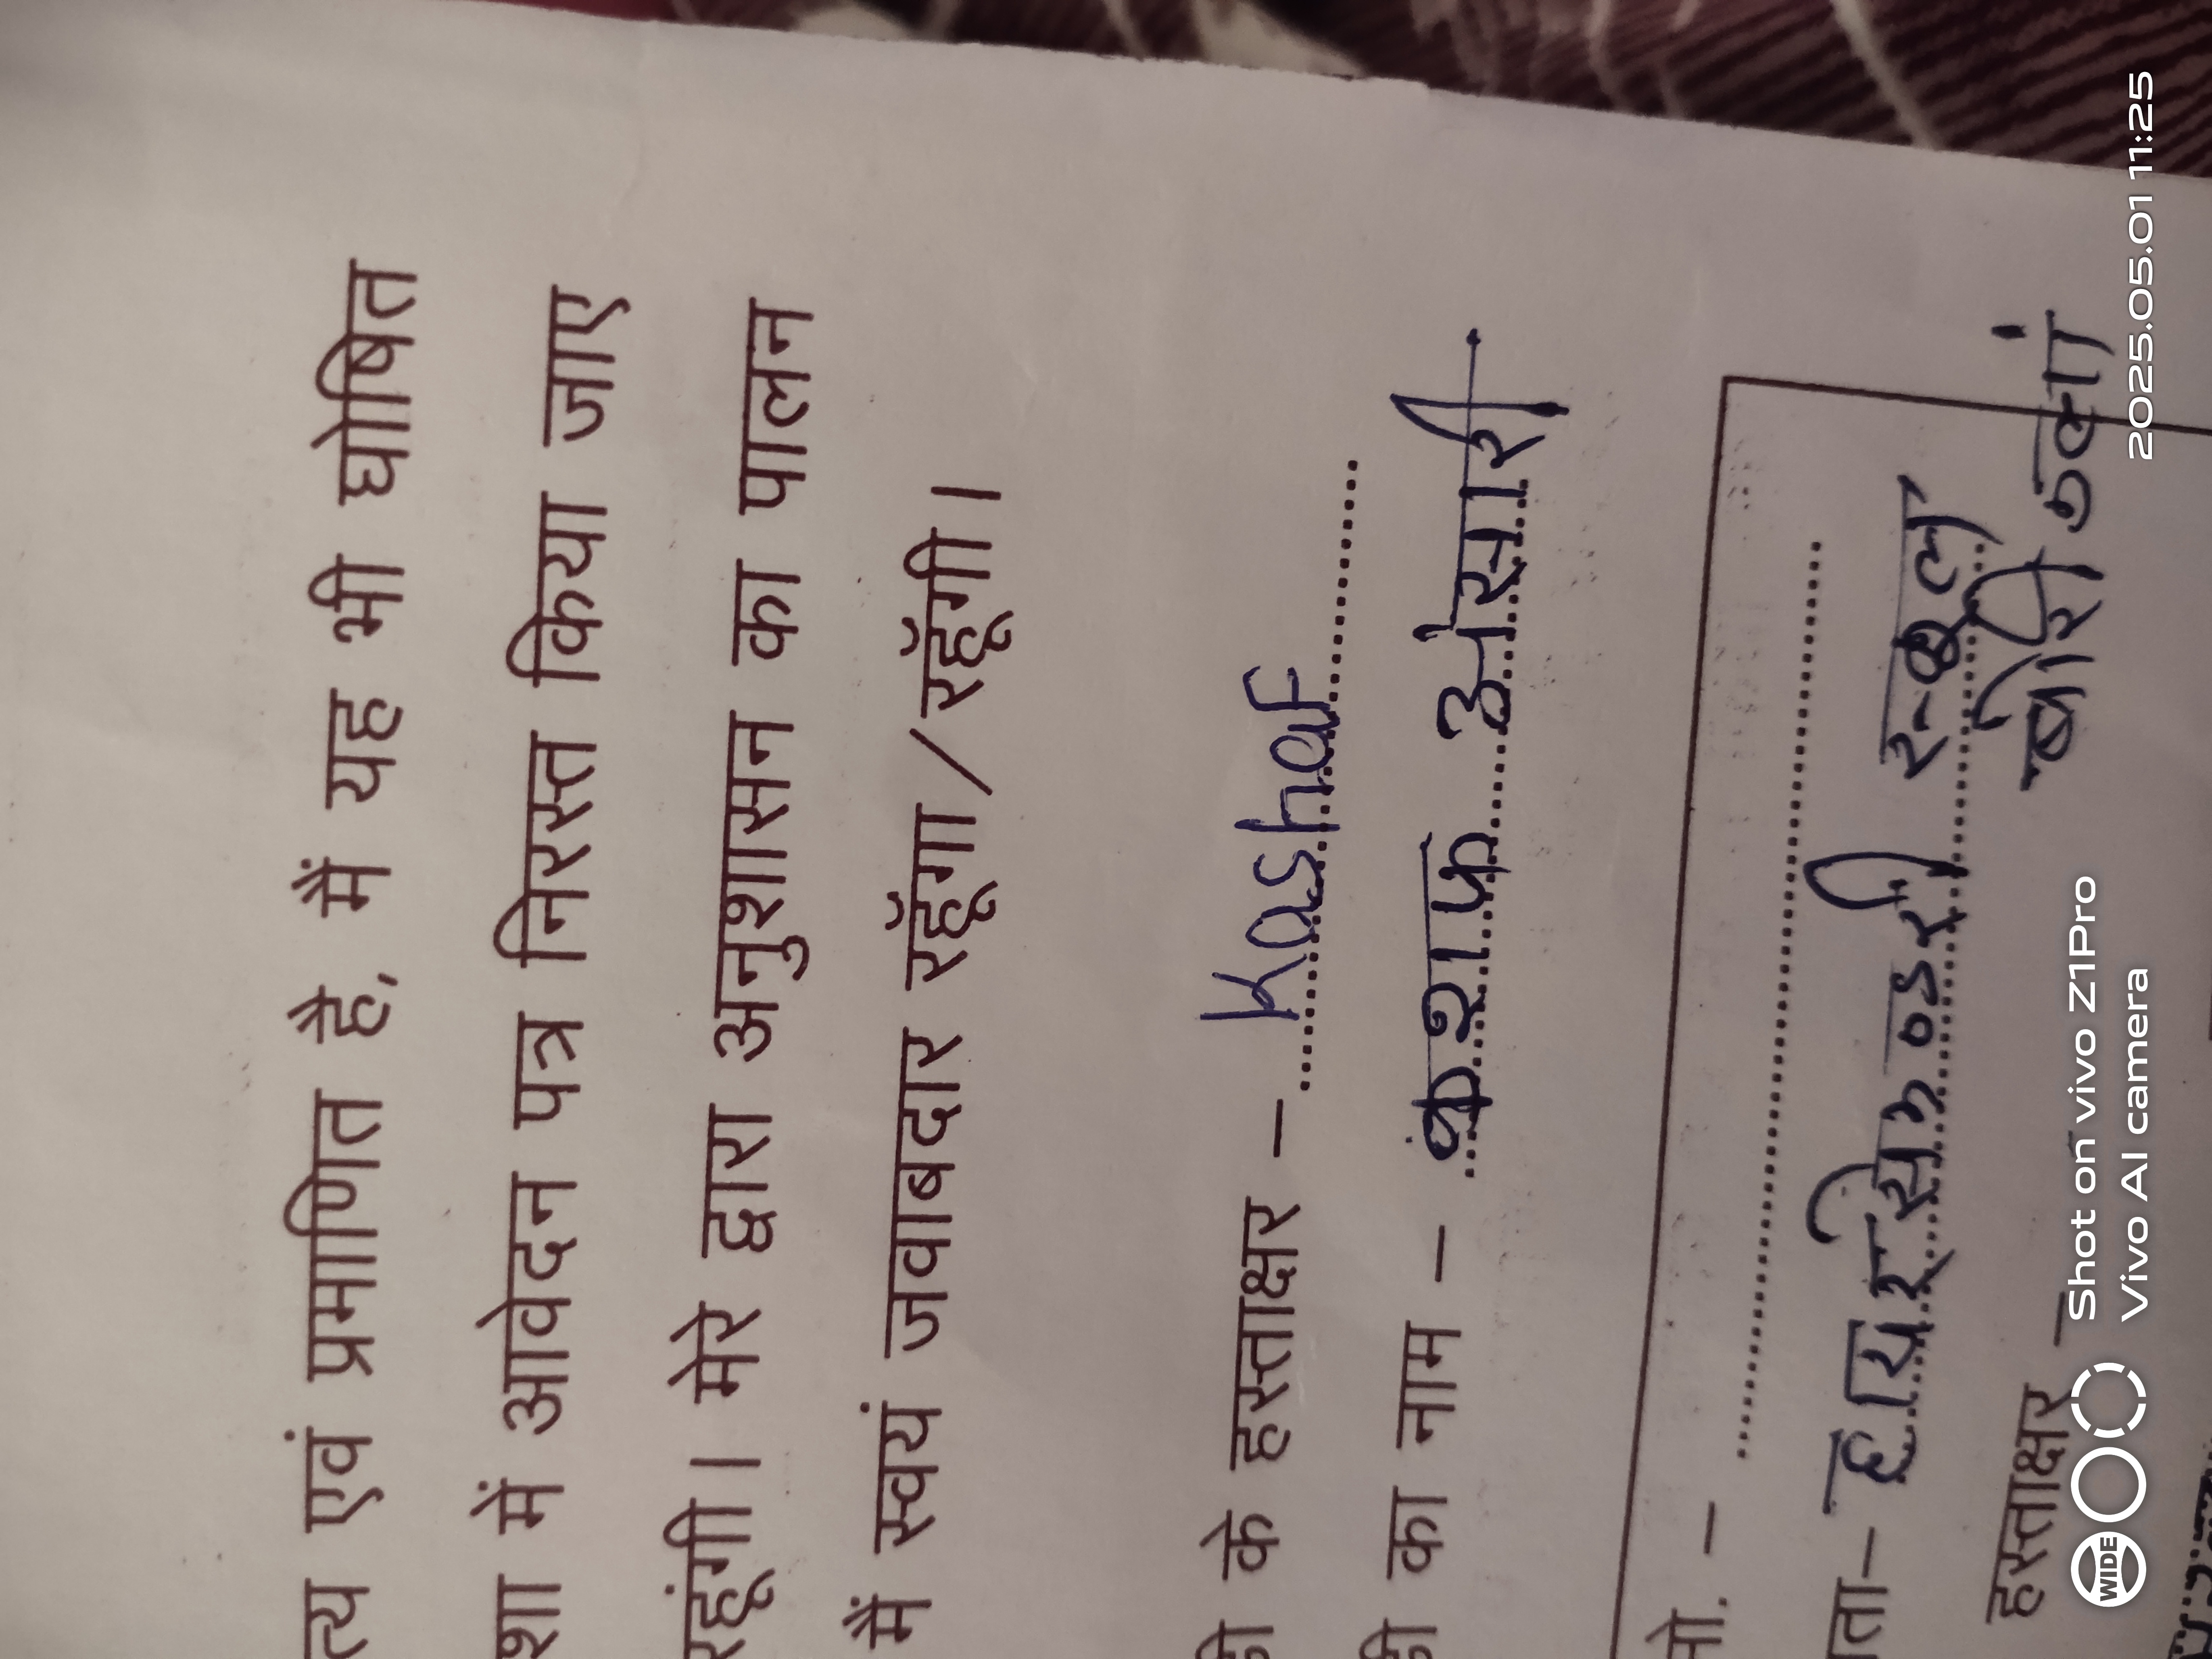 त्य एवं प्रमाणित है, मैं यह भी घोषित
शा में आवेदन पत्र निरस्त किया जाए
रहूंगी। मेरे द्वारा अनुशासन का पालन
मैं स्वयं जवाबदार रहूँगा/रहूँगी।
के हस्ताक्षर – Kashaf
का नाम – कशाफ अंसारी
मो. –
ता– हायर सेकण्डरी स्कूल
हस्ताक्षर –
Shot on vivo Z1Pro
Vivo AI camera
2025.05.01 11:25
WIDE